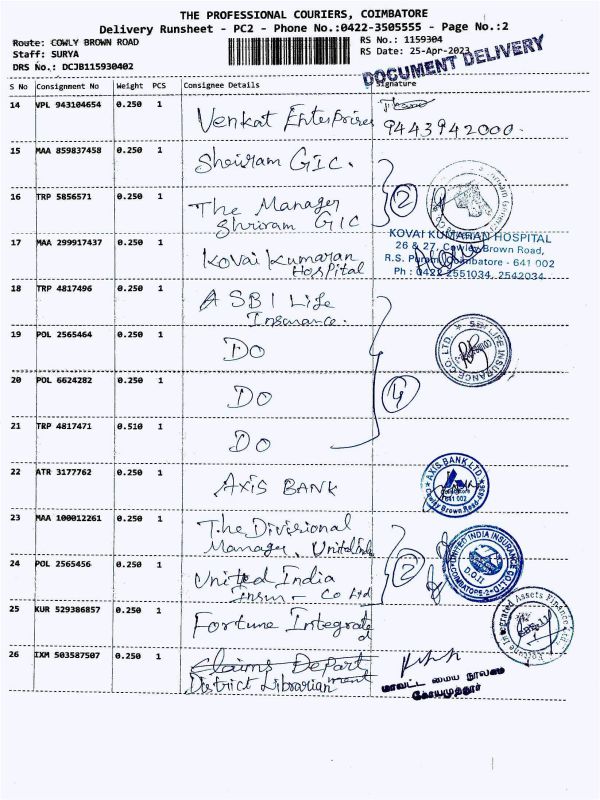 THE PROFESSIONAL COURIERS, COIMBATORE
Delivery Runsheet - PC2 - Phone No.:0422-3505555 - Page No.:2
Route: COWLY BROWN ROAD RS No.: 1159304
Staff: SURYA RS Date: 25-Apr-2023
DRS No.: DCJB115930402
DOCUMENT DELIVERY
S No Consignment No Weight PCS Consignee Details Signature
14 VPL 943104654 0.250 1 Venkat Enterprises 9443942000.
15 MAA 859837458 0.250 1 Shriram GIC.
16 TRP 5856571 0.250 1 The Manager
Shriram GIC
2
17 MAA 299917437 0.250 1 Kovai Kumaran
Hospital
KOVAI KUMARAN HOSPITAL
26 & 27, Cowley Brown Road,
R.S. Puram, Coimbatore - 641 002
Ph : 0422-2551034, 2542034
18 TRP 4817496 0.250 1 A SBI Life
Insurance.
19 POL 2565464 0.250 1 DO
20 POL 6624282 0.250 1 DO
4
SBI LIFE INSURANCE CO. LTD.
21 TRP 4817471 0.510 1 DO
22 ATR 3177762 0.250 1 AXIS BANK
AXIS BANK LTD
641 002
Cowley Brown Road
23 MAA 100012261 0.250 1 The Divisional
Manager, United India
24 POL 2565456 0.250 1 United India
Insur - Co Ltd
2
UNITED INDIA INSURANCE CO. LTD.
D.O.II
COIMBATORE-2
25 KUR 529386857 0.250 1 Fortune Integrated
Fortune Integrated Assets Finance Ltd
26 IXM 503587507 0.250 1 Claims Department
District Librarian
மாவட்ட மைய நூலகம்
கோயமுத்தூர்